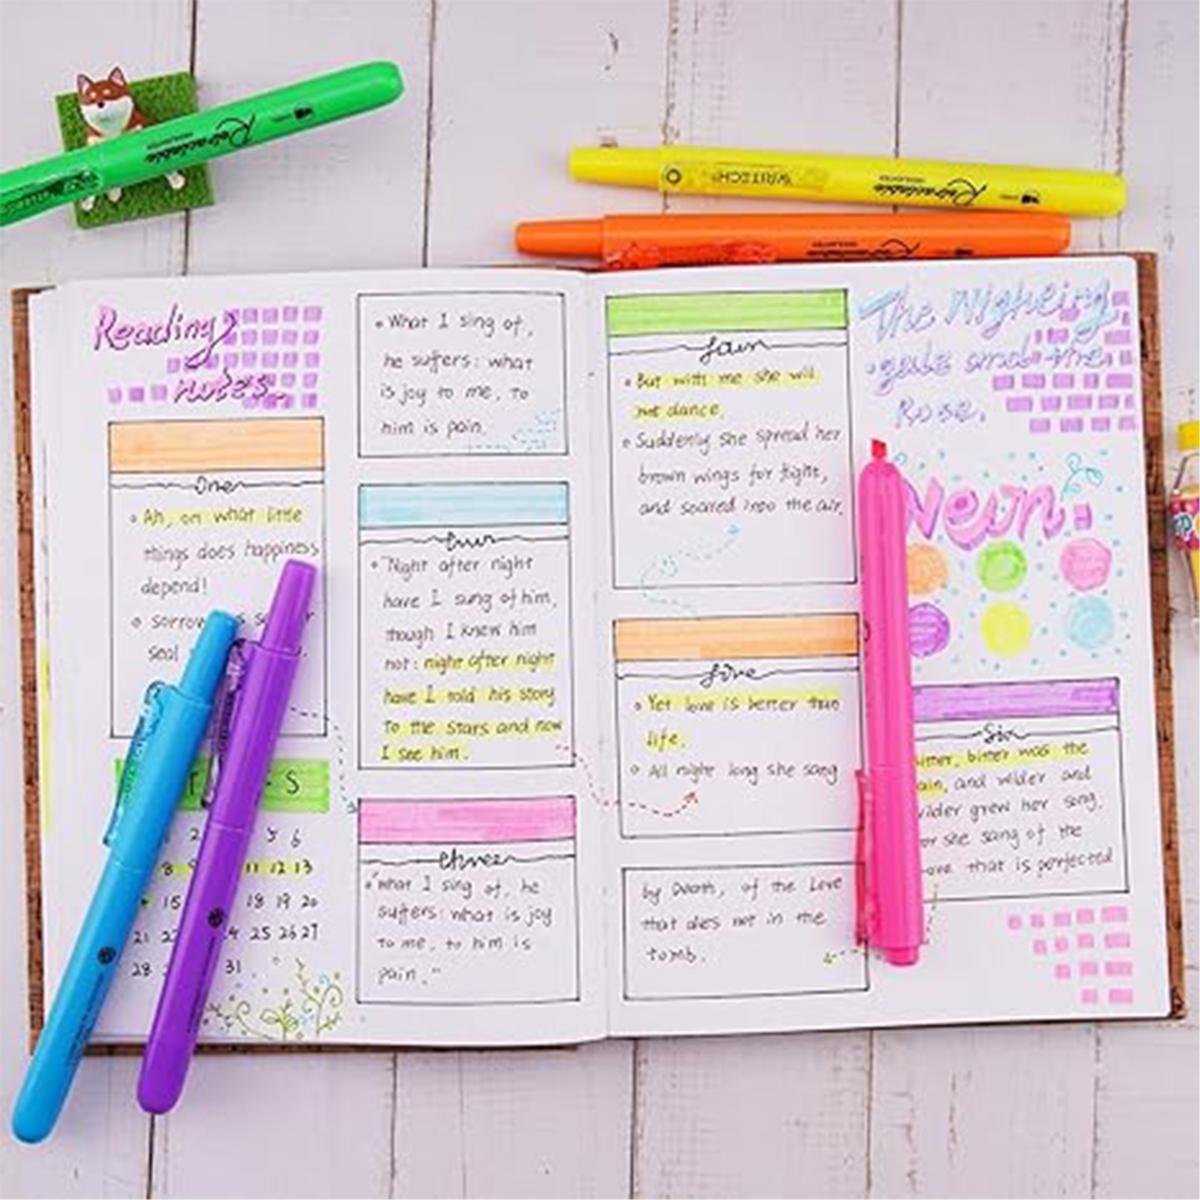 Retractable
Retractable
WRITECH
Retractable
Reading
notes.
One
Ah, on what little
things does happiness
depend!
sorrow
seal
S
2 5 6
8 11 12 13
15 18 19 20
21 25 26 27
28 31
What I sing of,
he suffers: what
is joy to me, to
him is pain.
"Night after night
have I sung of him,
though I knew him
not: night after night
have I told his story
to the stars and now
I see him.
three
"What I sing of, he
suffers: what is joy
to me, to him is
pain."
But with me she will
not dance.
Suddenly she spread her
brown wings for flight,
and soared into the air.
five
Yet love is better than
life.
All night long she sang
by Death, of the Love
that dies not in the
tomb.
The Nigheing
gale and the
Rose.
Neon
Six
bitter was the
and wilder and
grew her song,
she sang of the
that is perfected